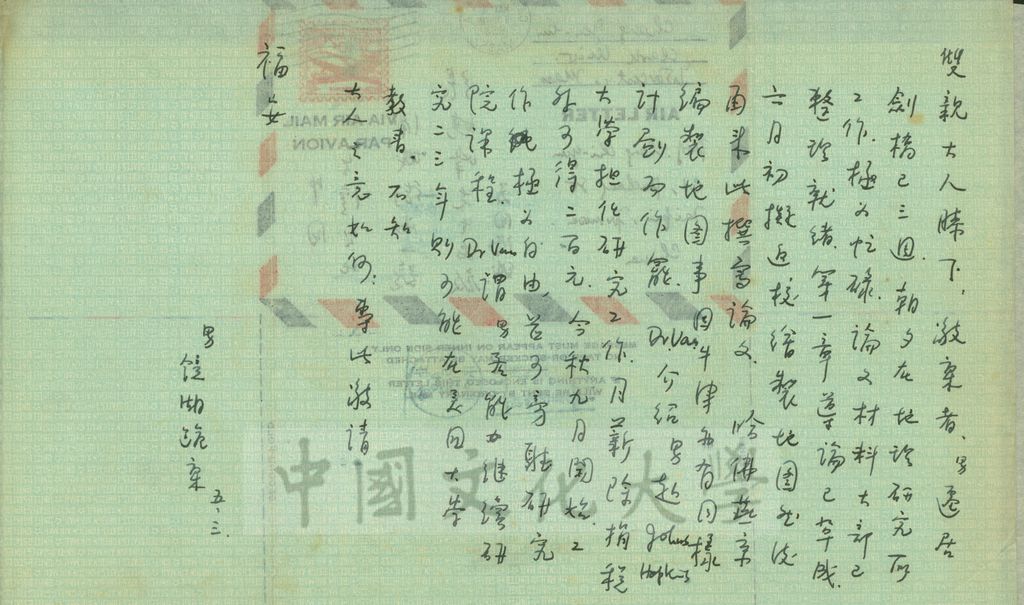 雙親大人膝下,敬稟者,男遷居
劍橋已三週,朝夕在地理研究所
工作,極為忙碌,論文材料大部已
整理就緒,第一章導論已草成,
六月初擬返校繪製地圖,然後
再來此撰寫論文。哈佛燕京
編製地圖事因牛津亦有同樣
計劃而作罷。Dr. Van 介紹男赴 Johns Hopkins
大學担任研究工作,月薪除捐稅
外可得二百元,今秋九月開始,工
作純極為自由,並可旁聽研究
院課程。Dr. Van 謂男若能在繼續研
究二三年,則可能在美國大學
教書。不知
大人之意如何,專此敬請
福安
男 鏡湖跪稟
五、三、
VIA AIR MAIL
PAR AVION
AIR LETTER
中國文化大學